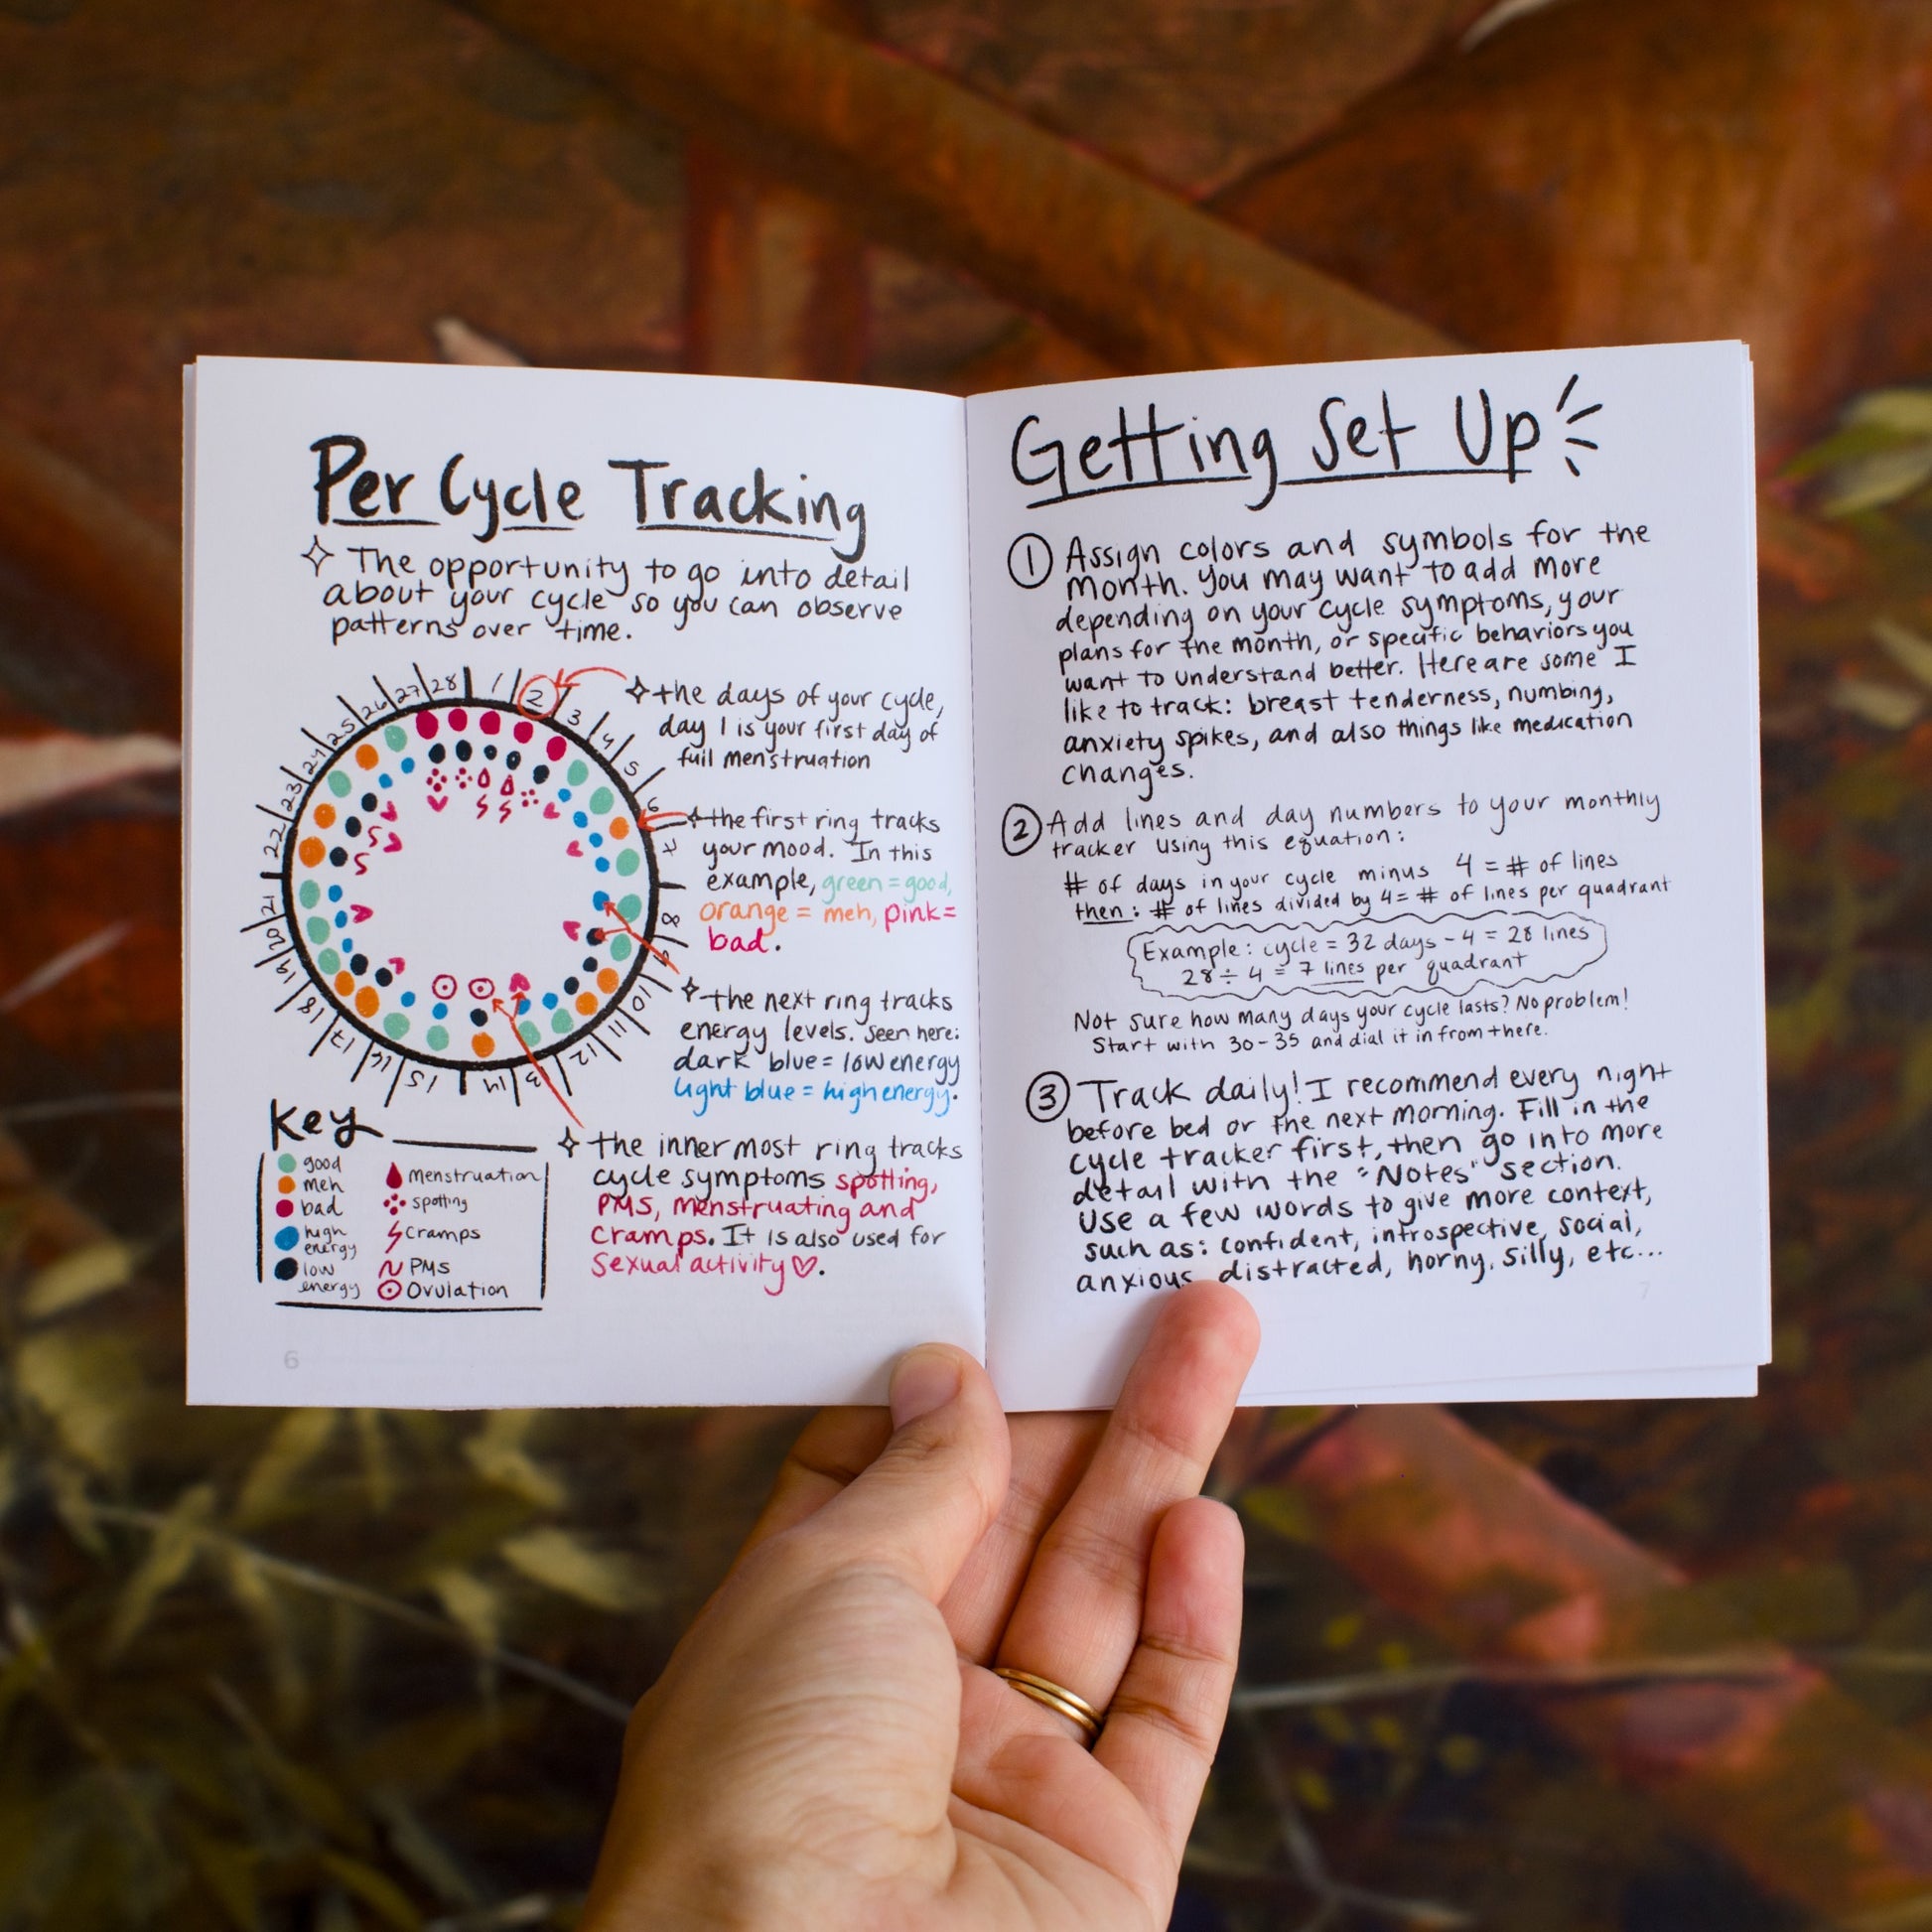 Per Cycle Tracking
The opportunity to go into detail
about your cycle so you can observe
patterns over time.
1
2
3
4
5
6
7
8
9
10
11
12
13
14
15
16
17
18
19
20
21
22
23
24
25
26
27
28
the days of your cycle,
day 1 is your first day of
full menstruation
the first ring tracks
your mood. In this
example, green = good,
orange = meh, pink =
bad.
the next ring tracks
energy levels. Seen here:
dark blue = low energy
light blue = high energy.
the inner most ring tracks
cycle symptoms spotting,
PMS, menstruating and
cramps. It is also used for
sexual activity ♡.
Key
good
meh
bad
high
energy
low
energy
Menstruation
spotting
Cramps
PMS
Ovulation
6
Getting Set Up
1 Assign colors and symbols for the
month. You may want to add more
depending on your cycle symptoms, your
plans for the month, or specific behaviors you
want to understand better. Here are some I
like to track: breast tenderness, numbing,
anxiety spikes, and also things like medication
changes.
2 Add lines and day numbers to your monthly
tracker using this equation:
# of days in your cycle minus 4 = # of lines
then: # of lines divided by 4 = # of lines per quadrant
Example: cycle = 32 days - 4 = 28 lines
28 ÷ 4 = 7 lines per quadrant
Not sure how many days your cycle lasts? No problem!
Start with 30-35 and dial it in from there.
3 Track daily! I recommend every night
before bed or the next morning. Fill in the
cycle tracker first, then go into more
detail with the "Notes" section.
Use a few words to give more context,
such as: confident, introspective, social,
anxious, distracted, horny, silly, etc...
7